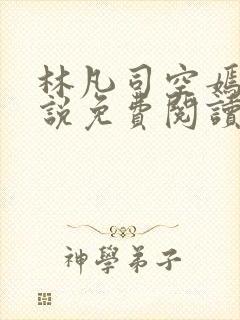 林凡司空嫣
說免費閱讀
神學弟子